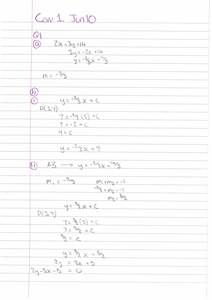 Core 1 Jun 10
Q1
(a) 2x+3y=14
3y=-2x+14
y=-2/3x+14/3
m=-2/3
(b)
(i) y=-2/3x+c
P(3,7)
7=-2/3(3)+c
7=-2+c
9=c
y=-2/3x+9
(ii) AB → y=-2/3x+14/3
m₁=-2/3 m₁×m₂=-1
-2/3×m₂=-1
m₂=3/2
y=3/2x+c
P(3,7)
7=3/2(3)+c
7=9/2+c
5/2=c
y=3/2x+5/2
2y=3x+5
2y-3x-5=0